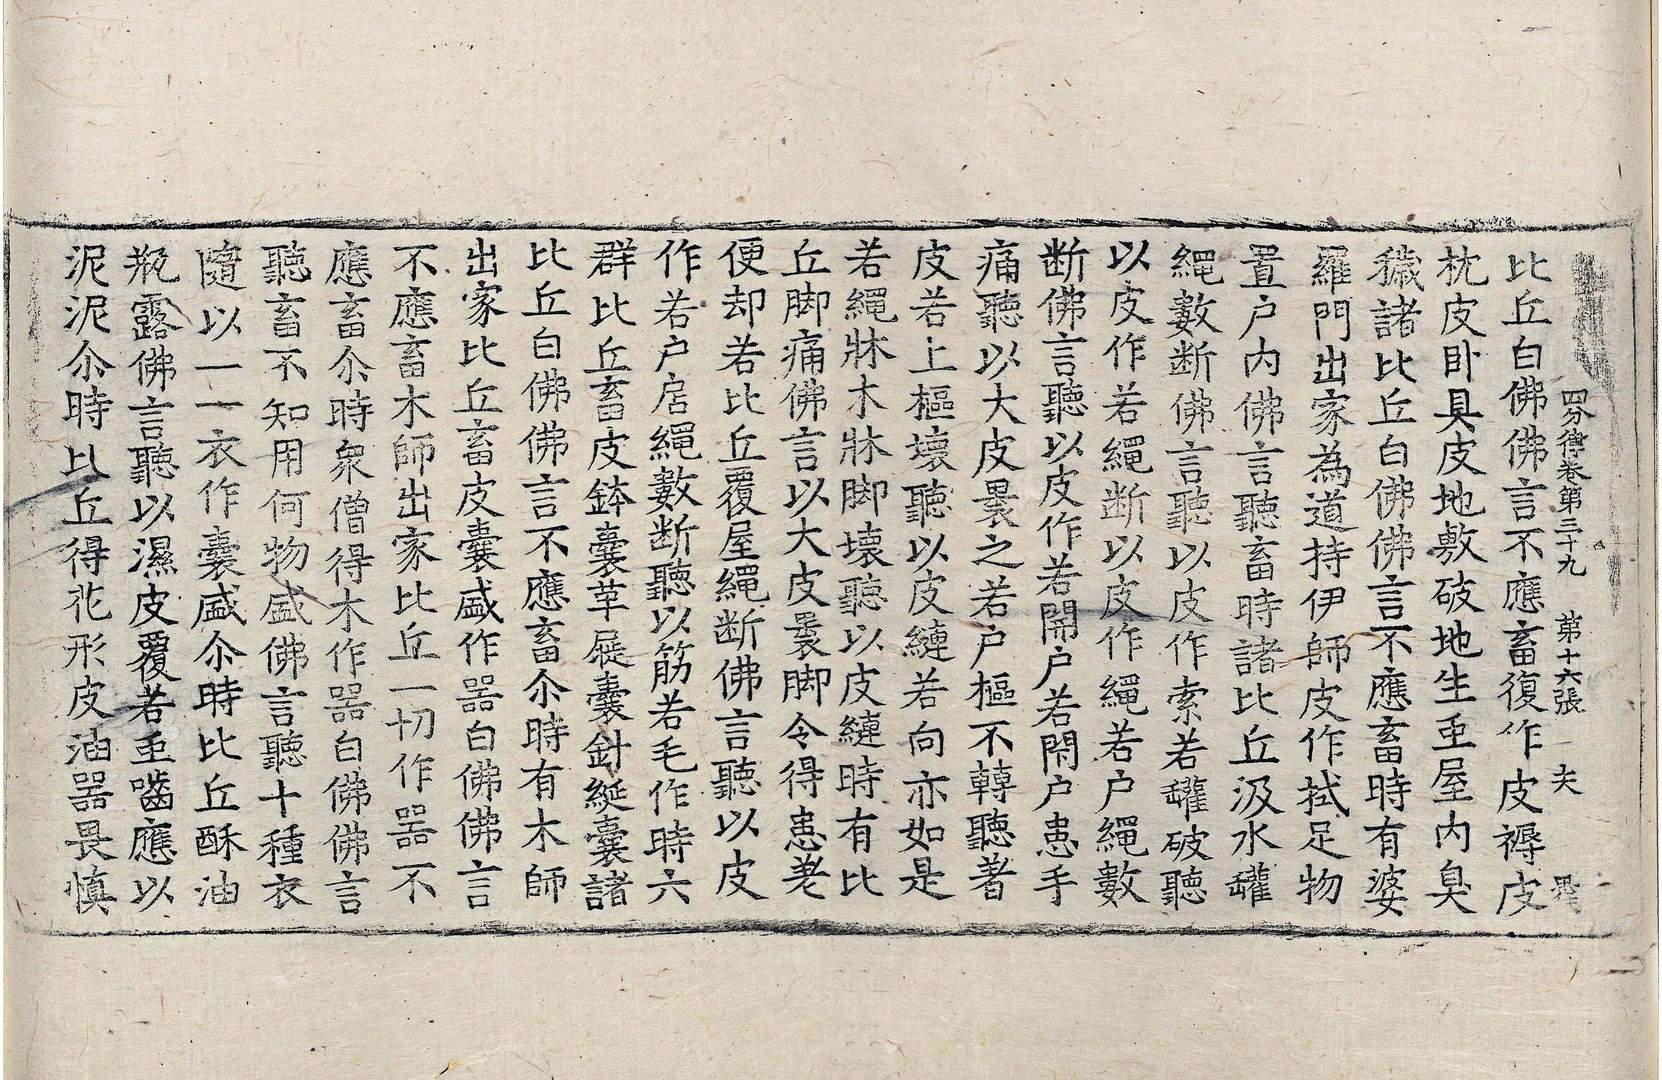 四分律卷第三十九　第十六張　夫
比丘白佛佛言不應畜復作皮褥皮
枕皮卧具皮地敷破地生虫屋内臭
穢諸比丘白佛佛言不應畜時有婆
羅門出家為道持伊師皮作拭足物
置户内佛言聽畜時諸比丘汲水罐
繩數断佛言聽以皮作索若罐破聽
以皮作若繩断以皮作繩若户繩數
断佛言聽以皮作若開户若閉户患手
痛聽以大皮褁之若户樞不轉聽著
皮若上樞壞聽以皮縺若向亦如是
若繩牀木牀脚壞聽以皮縺時有比
丘脚痛佛言以大皮褁脚令得患差
便却若比丘覆屋繩断佛言聽以皮
作若户居繩數断聽以筋若毛作時六
群比丘畜皮鉢囊革屣囊針綖囊諸
比丘白佛佛言不應畜尒時有木師
出家比丘畜皮囊盛作器白佛佛言
不應畜木師出家比丘一切作器不
應畜尒時衆僧得木作器白佛佛言
聽畜不知用何物盛佛言聽十種衣
隨以一一衣作囊盛尒時比丘酥油
瓶露佛言聽以濕皮覆若虫嚙應以
泥泥尒時比丘得花形皮油器畏慎